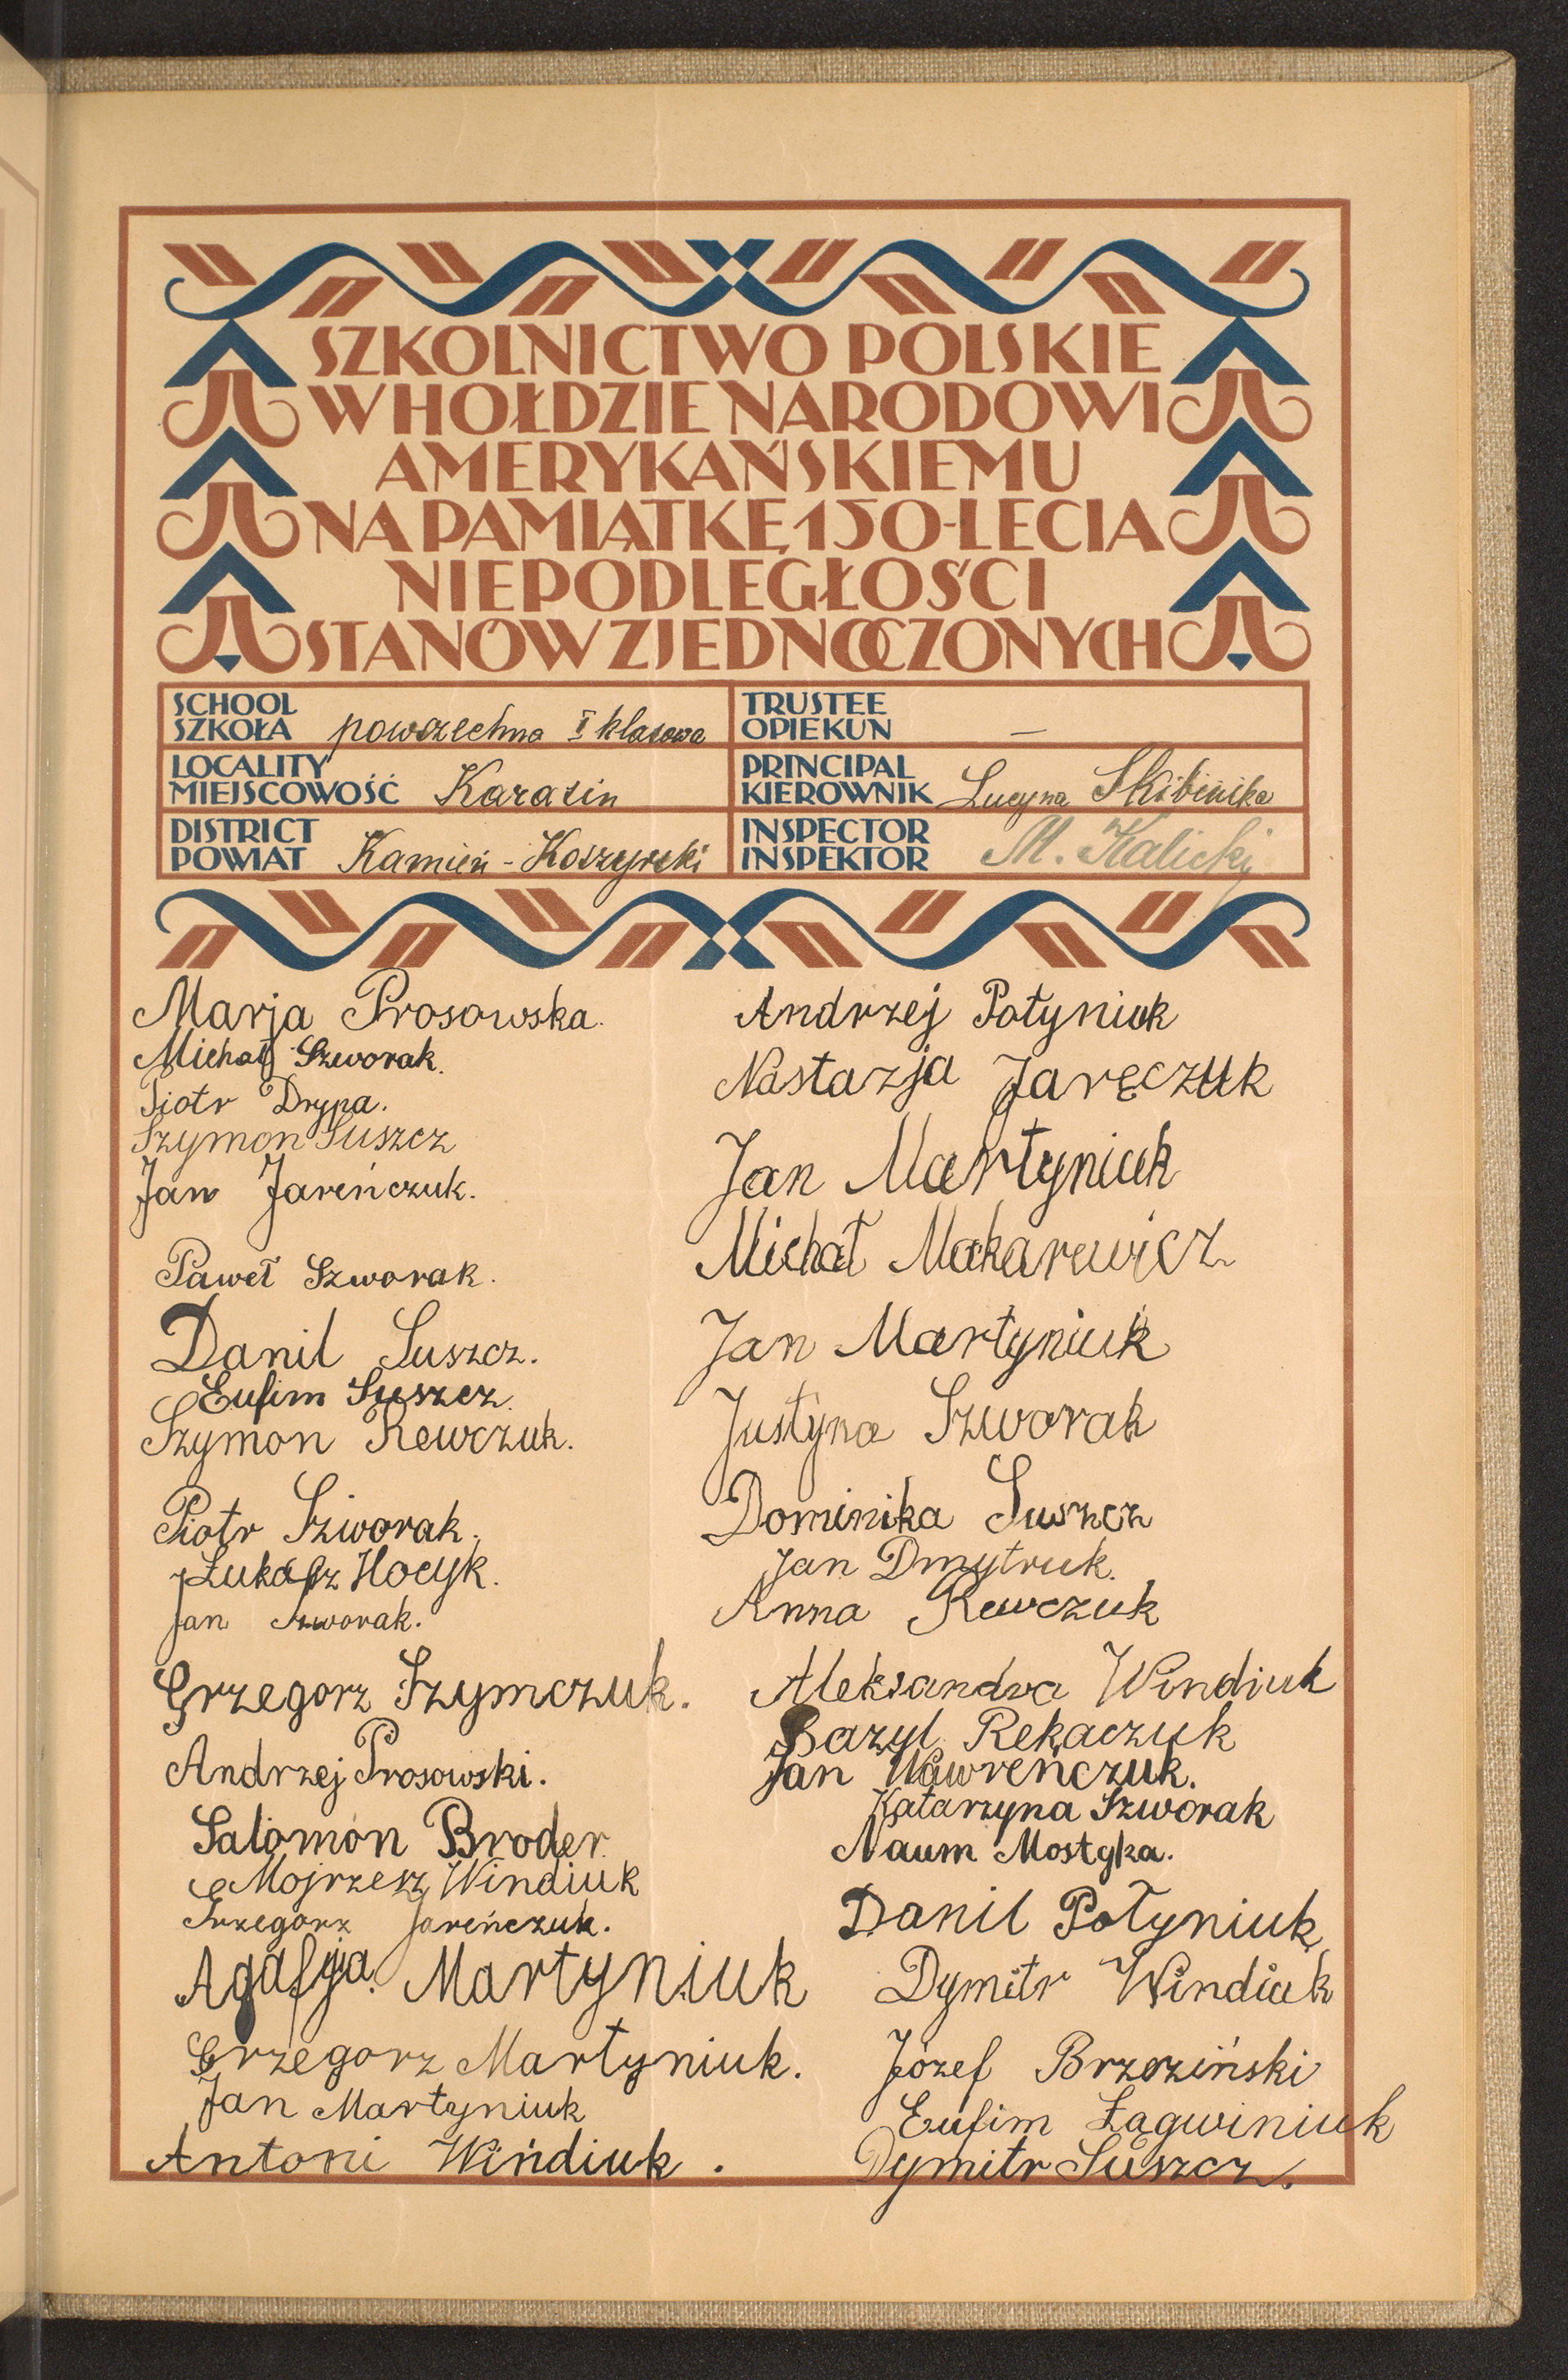 SZKOLNICTWO POLSKIE
W HOŁDZIE NARODOWI
AMERYKAŃSKIEMU
NA PAMIĄTKĘ 150-LECIA
NIEPODLEGŁOŚCI
STANÓW ZJEDNOCZONYCH
SCHOOL
SZKOŁA powszechna I klasowa
TRUSTEE
OPIEKUN —
LOCALITY
MIEJSCOWOŚĆ Karasin
PRINCIPAL
KIEROWNIK Lucyna Skibińska
DISTRICT
POWIAT Kamień - Koszyrski
INSPECTOR
INSPEKTOR M. Kalicki
Marja Prosowska.
Michał Szworak.
Piotr Drypa.
Szymon Suszcz
Jan Jareńczuk.
Paweł Szworak.
Danil Suszcz.
Eufim Suszcz.
Szymon Rewczuk.
Piotr Szworak.
Łukasz Hocyk.
Jan Szworak.
Grzegorz Szymczuk.
Andrzej Prosowski.
Salomon Broder.
Mojrzesz Windiuk
Grzegorz Jareńczuk.
Agafja Martyniuk
Grzegorz Martyniuk.
Jan Martyniuk
Antoni Wińdiuk.
Andrzej Potyniuk
Nastazja Jaręczuk
Jan Martyniuk
Michał Makarewicz
Jan Martyniuk
Justyna Szworak
Dominika Suszcz
Jan Dmytruk.
Anna Rewczuk
Aleksandra Windiuk
Bazyl Rekaczuk
Jan Wawreńczuk.
Katarzyna Szworak
Naum Mostyka.
Danil Połyniuk
Dymitr Windiuk
Józef Brzeziński
Eufim Łagwiniuk
Dymitr Suszcz.